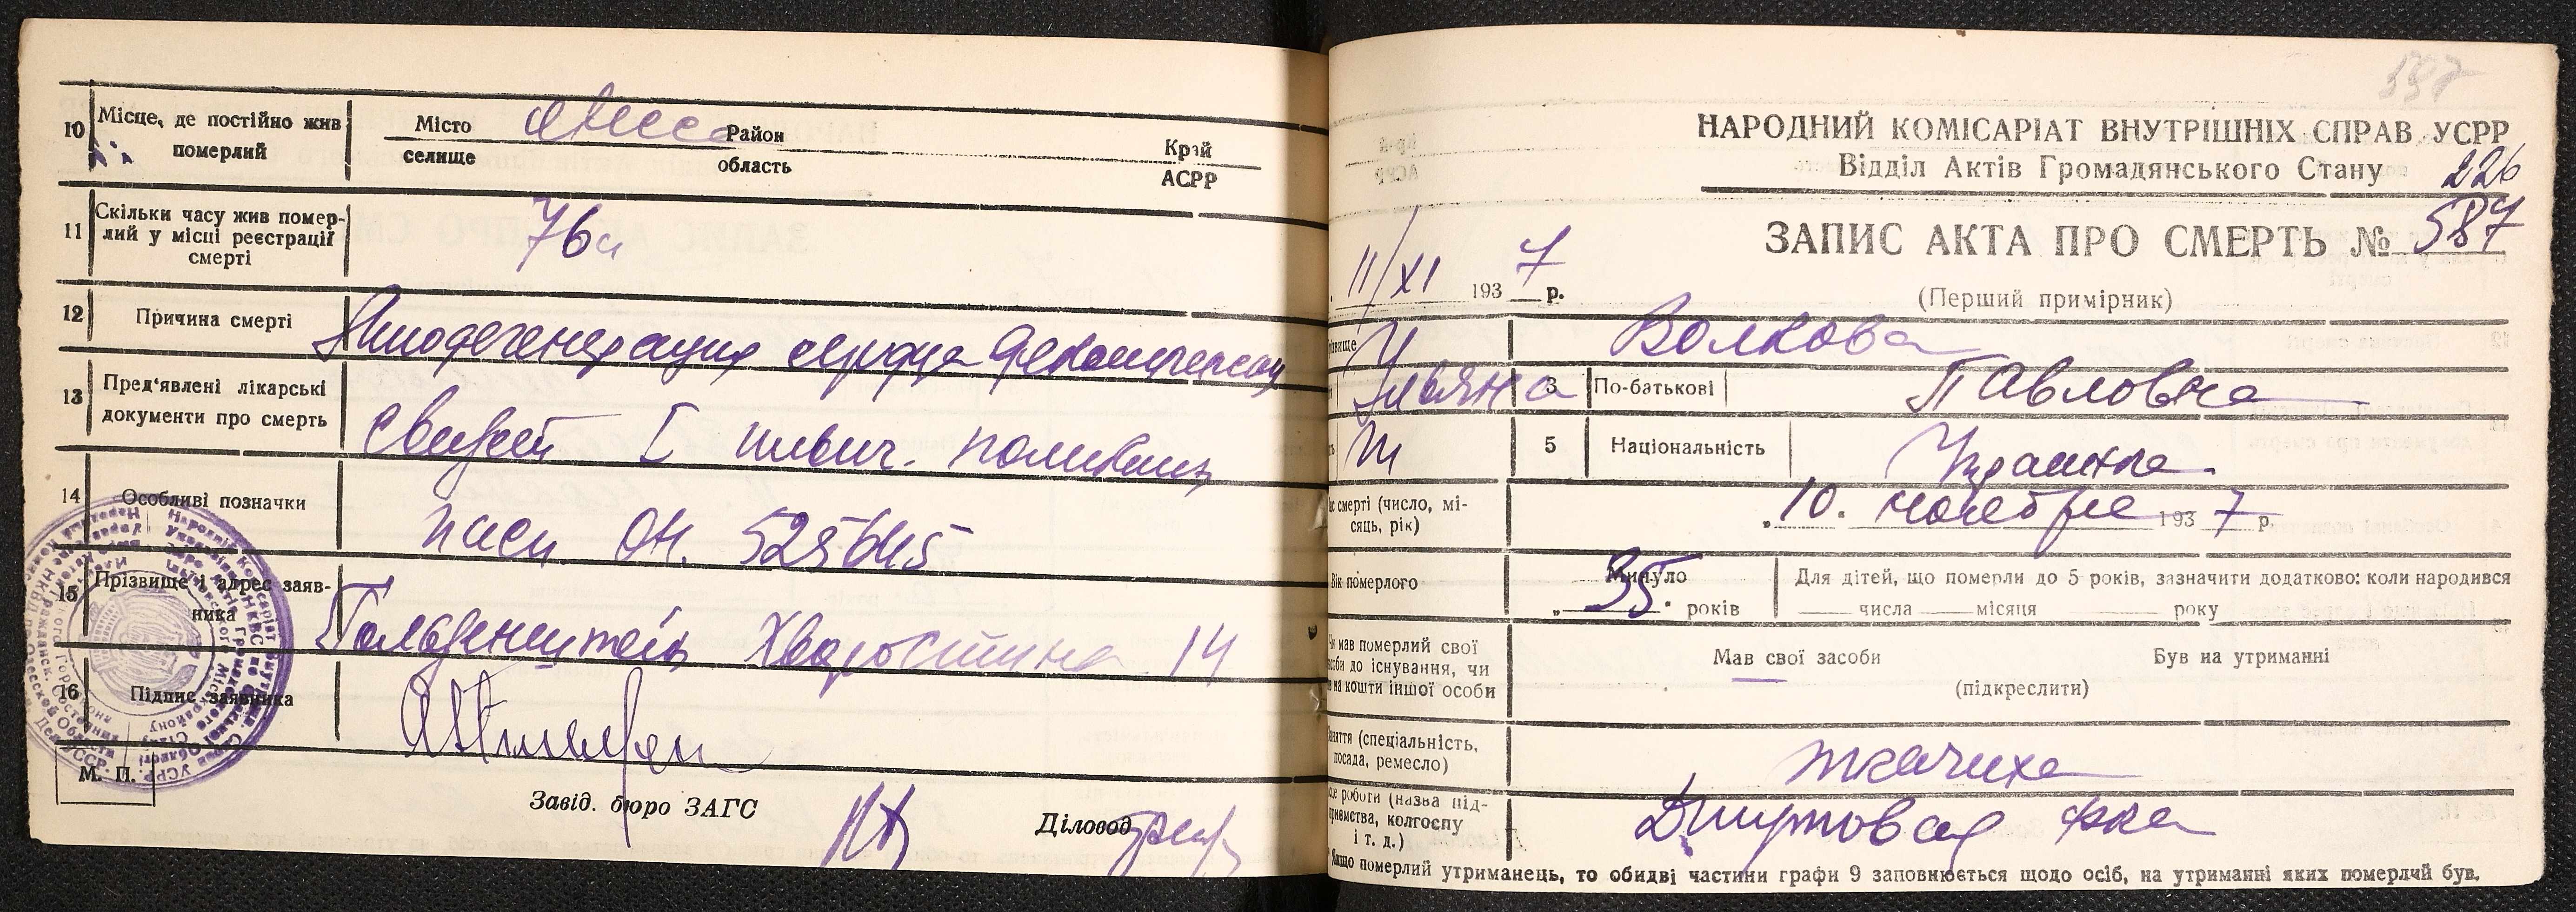 10 Місце, де постійно жив померлий
Місто селище
Одесса
Район область
Край АСРР
11 Скільки часу жив померлий у місці реєстрації смерті
12 Причина смерті
Миодегенерация сердца декомпенсац
13 Пред'явлені лікарські документи про смерть
Свидет I поликлин
14 Особливі позначки
15 Прізвище і адрес заявника
Гольденштейн Хворостина 14
16 Підпис заявника
М. П.
Завід. бюро ЗАГС
Діловод
НАРОДНИЙ КОМІСАРІАТ ВНУТРІШНІХ СПРАВ УСРР
Відділ Актів Громадянського Стану
226
ЗАПИС АКТА ПРО СМЕРТЬ № 587
11/XI 1937 р.
(Перший примірник)
Волкова
Ульяна
3 По-батькові Павловна
5 Національність
смерті (число, місяць, рік)
„10. ноября 1937 р.
Вік померлого
Минуло
„35. років
Для дітей, що померли до 5 років, зазначити додатково: коли народився
числа місяця року
мав померлий свої
до існування, чи
на кошти іншої особи
Мав свої засоби Був на утриманні
(підкреслити)
(спеціальність, посада, ремесло)
ткачиха
роботи (назва під-
колгоспу
і т. д.)
Джутовая ф-ка
Якщо померлий утриманець, то обидві частини графи 9 заповнюється щодо осіб, на утриманні яких померлий був.